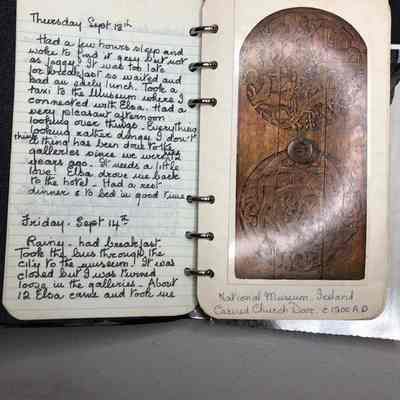 Thursday Sept 13th
Had a few hours sleep and
woke to find it grey but not
as foggy. It was too late
for breakfast so waited and
had an early lunch. Took a
taxi to the Museum where I
connected with Elsa. Had a
very pleasant afternoon
looking over things. Everything
looking rather dingey I don't
think a thing has been done to the
galleries since we were
years ago. It needs a little
love! Elsa drove me back
to the hotel. Had a rest
dinner & to bed in good time
Friday - Sept 14th
Rainey - had breakfast.
Took the bus through the
city to the museum. It was
closed but I was turned
loose in the galleries. About
12 Elsa came and took me
National Museum, Iceland
Carved Church Door, c 1200 A.D